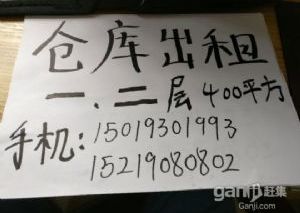 仓库出租
一、二层 400平方
手机：15019301993
15219080802
ganji 赶集
Ganji.com